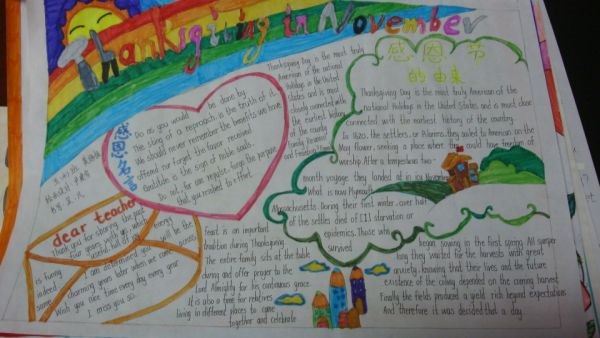 Thanksgiving in November
Thanksgiving Day is the most truly
American of the national
Holidays in the United
States and is most
closely connected with
the earliest history
of the country
感恩节
的由来
Thanksgiving Day is the most truly American of the
national Holidays in the United States and is most close
connected with the earliest history of the country.
In 1620, the settlers, or Pilgrims, they sailed to American on the
May flower, seeking a place where they could have freedom of
worship. After a tempestuous two-
month voyage they landed at in icy November
What is now Plymouth
Massachusetts. During their first winter, over half
of the settlers died of [1] starvation or
epidemics. Those who
survived
began sowing in the first spring. All summer
long they waited for the harvests with great
anxiety, knowing that their lives and the future
existence of the colony depended on the coming harvest
Finally the fields produced a yield rich beyond expectations
And therefore it was decided that a day
感恩名言
Do as you would be done by
The sting of a reproach is the truth of it.
We should never remember the benefits we have
offered nor forget the favor received
Gratitude is the sign of noble souls.
Do not, for one repulse, forgo the purpose
that you resolved to effort.
dear teacher
Thank you for sharing the past
four years with us
is funny
indeed I am determined you will be the
same charming years later when we come across
Wish you nice time every day every year
I miss you so..
Feast is an important
tradition during Thanksgiving
The entire family sits at the table
during and offer prayer to the
Lord Almighty for his continuous grace
It is also a time for relatives
living in different places to come
together and celebrate